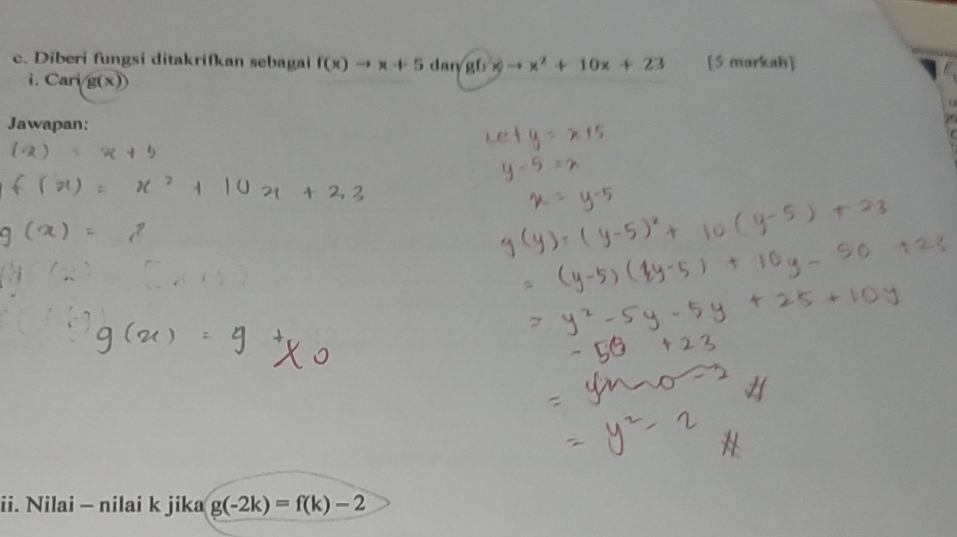 c. Diberi fungsi ditakrifkan sebagai f(x) → x + 5 dan gf: x → x² + 10x + 23 [5 markah]
i. Cari g(x)
Jawapan:
(x) = x + 5
f(x) = x² + 10x + 23
g(x) = ?
g(x) = g + x 0
Let y = x+5
y-5 = x
x = y-5
g(y) = (y-5)² + 10(y-5) + 23
= (y-5)(y-5) + 10y - 50 + 23
= y² - 5y - 5y + 25 + 10y
- 50 + 23
= y² - 2 #
ii. Nilai – nilai k jika g(-2k) = f(k) – 2